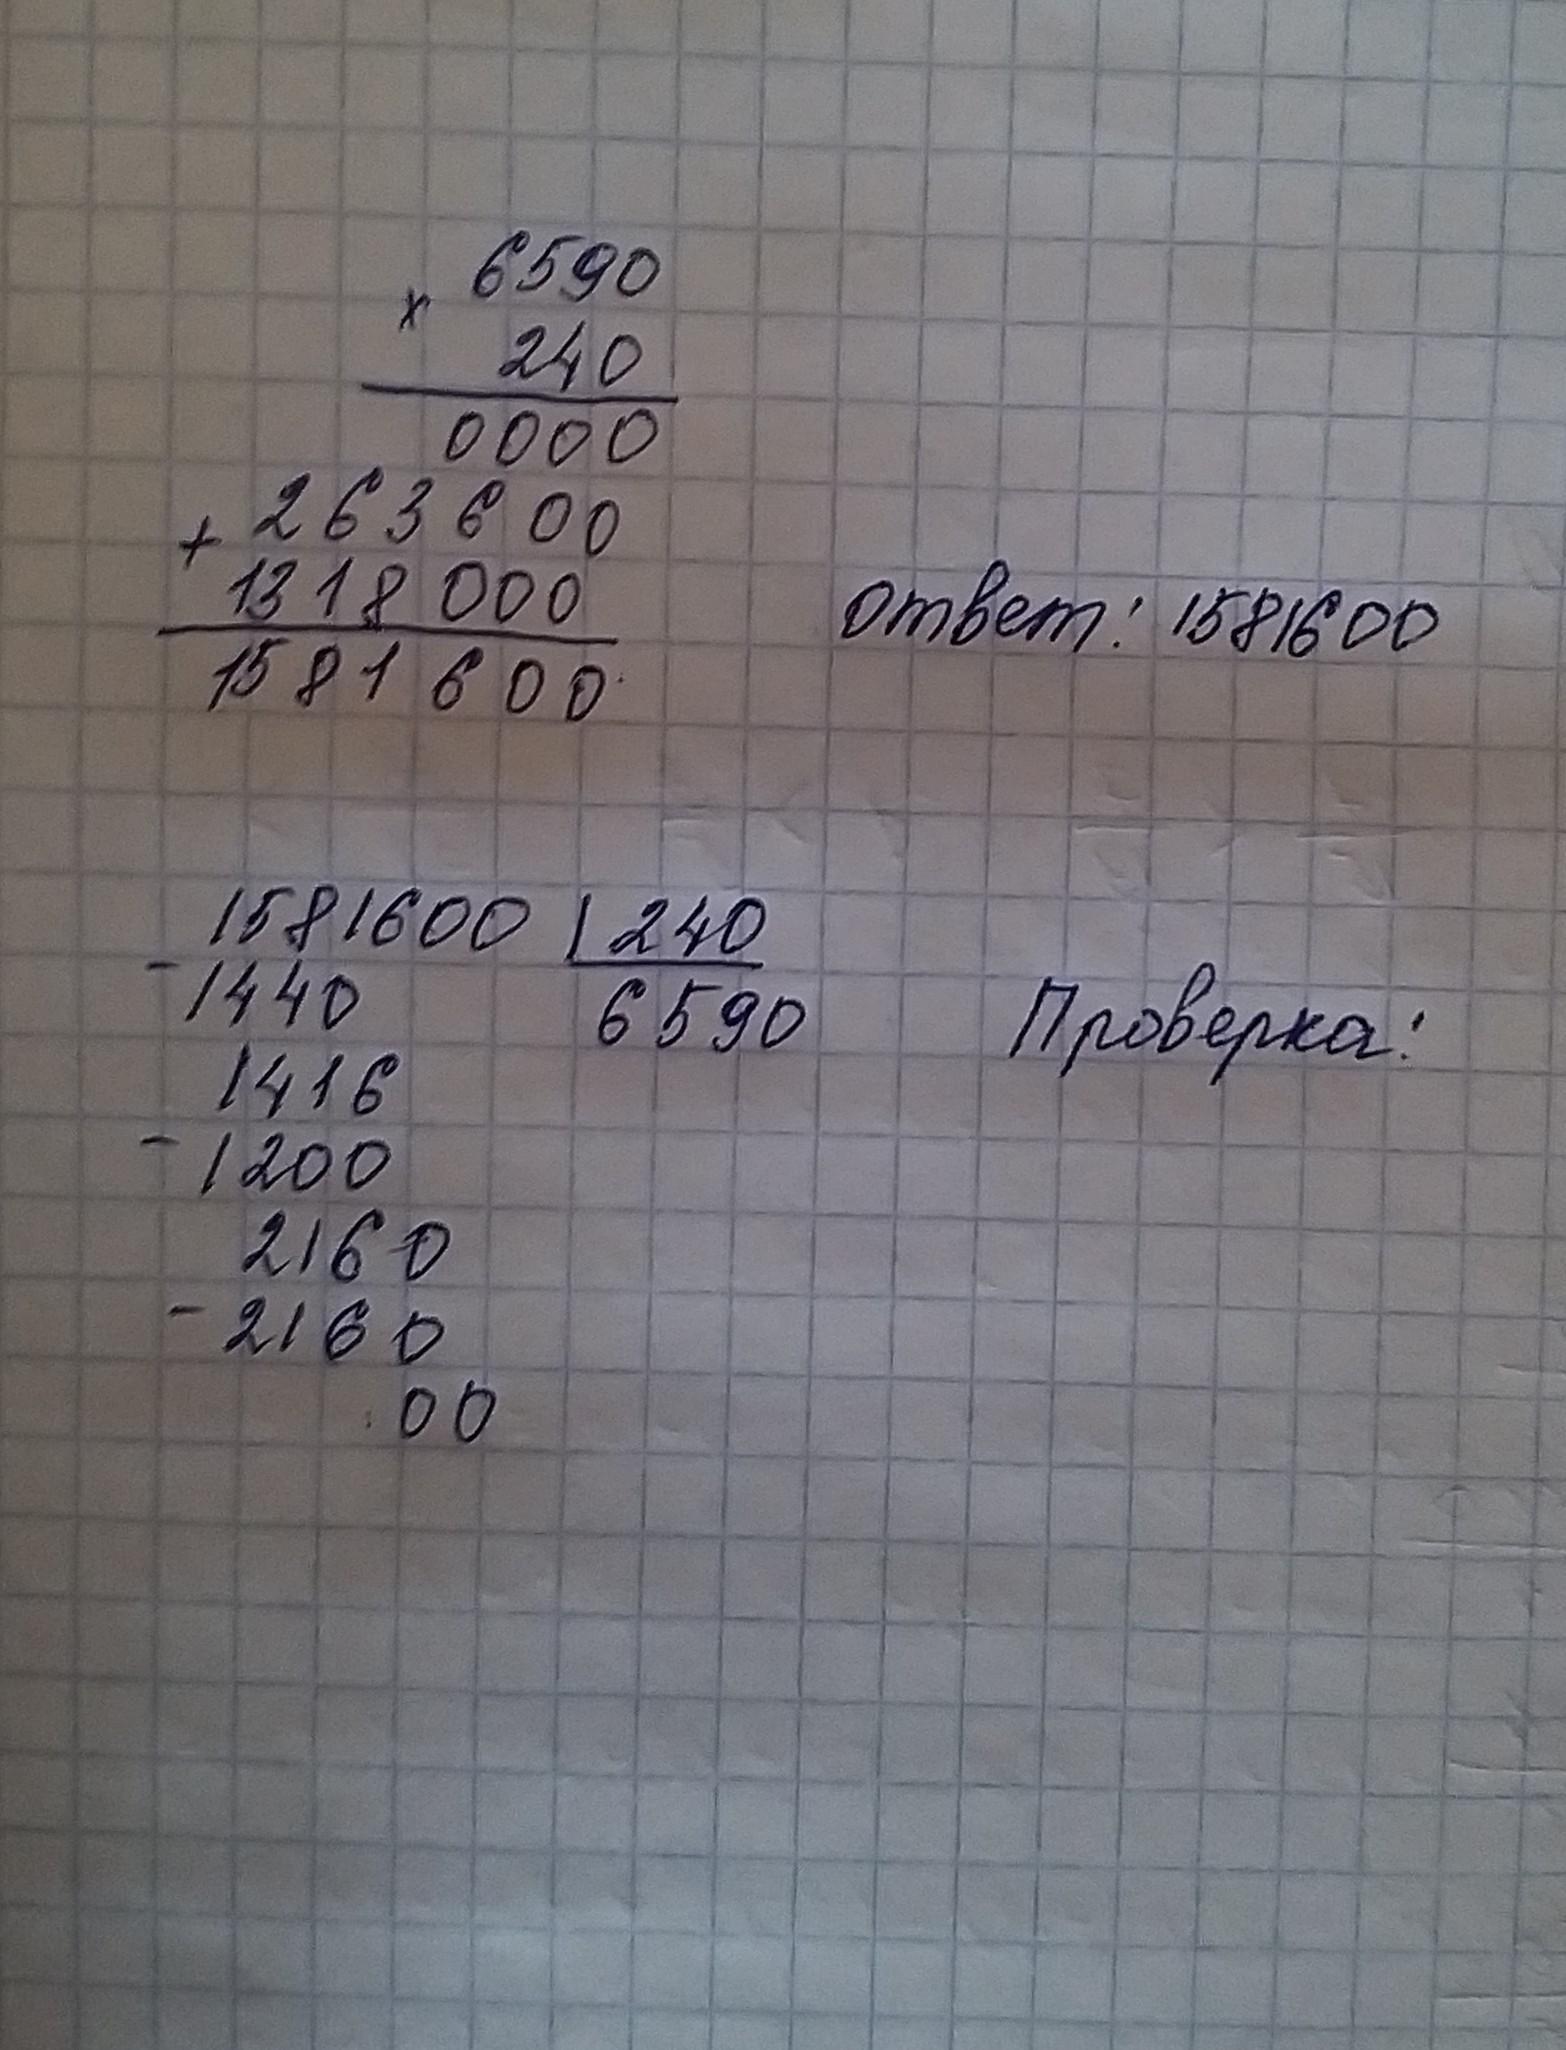 6590
×
240
0000
263600
+
1318000
1581600
ответ: 1581600
1581600 | 240
- 1440 6590
Проверка:
1416
- 1200
2160
- 2160
00